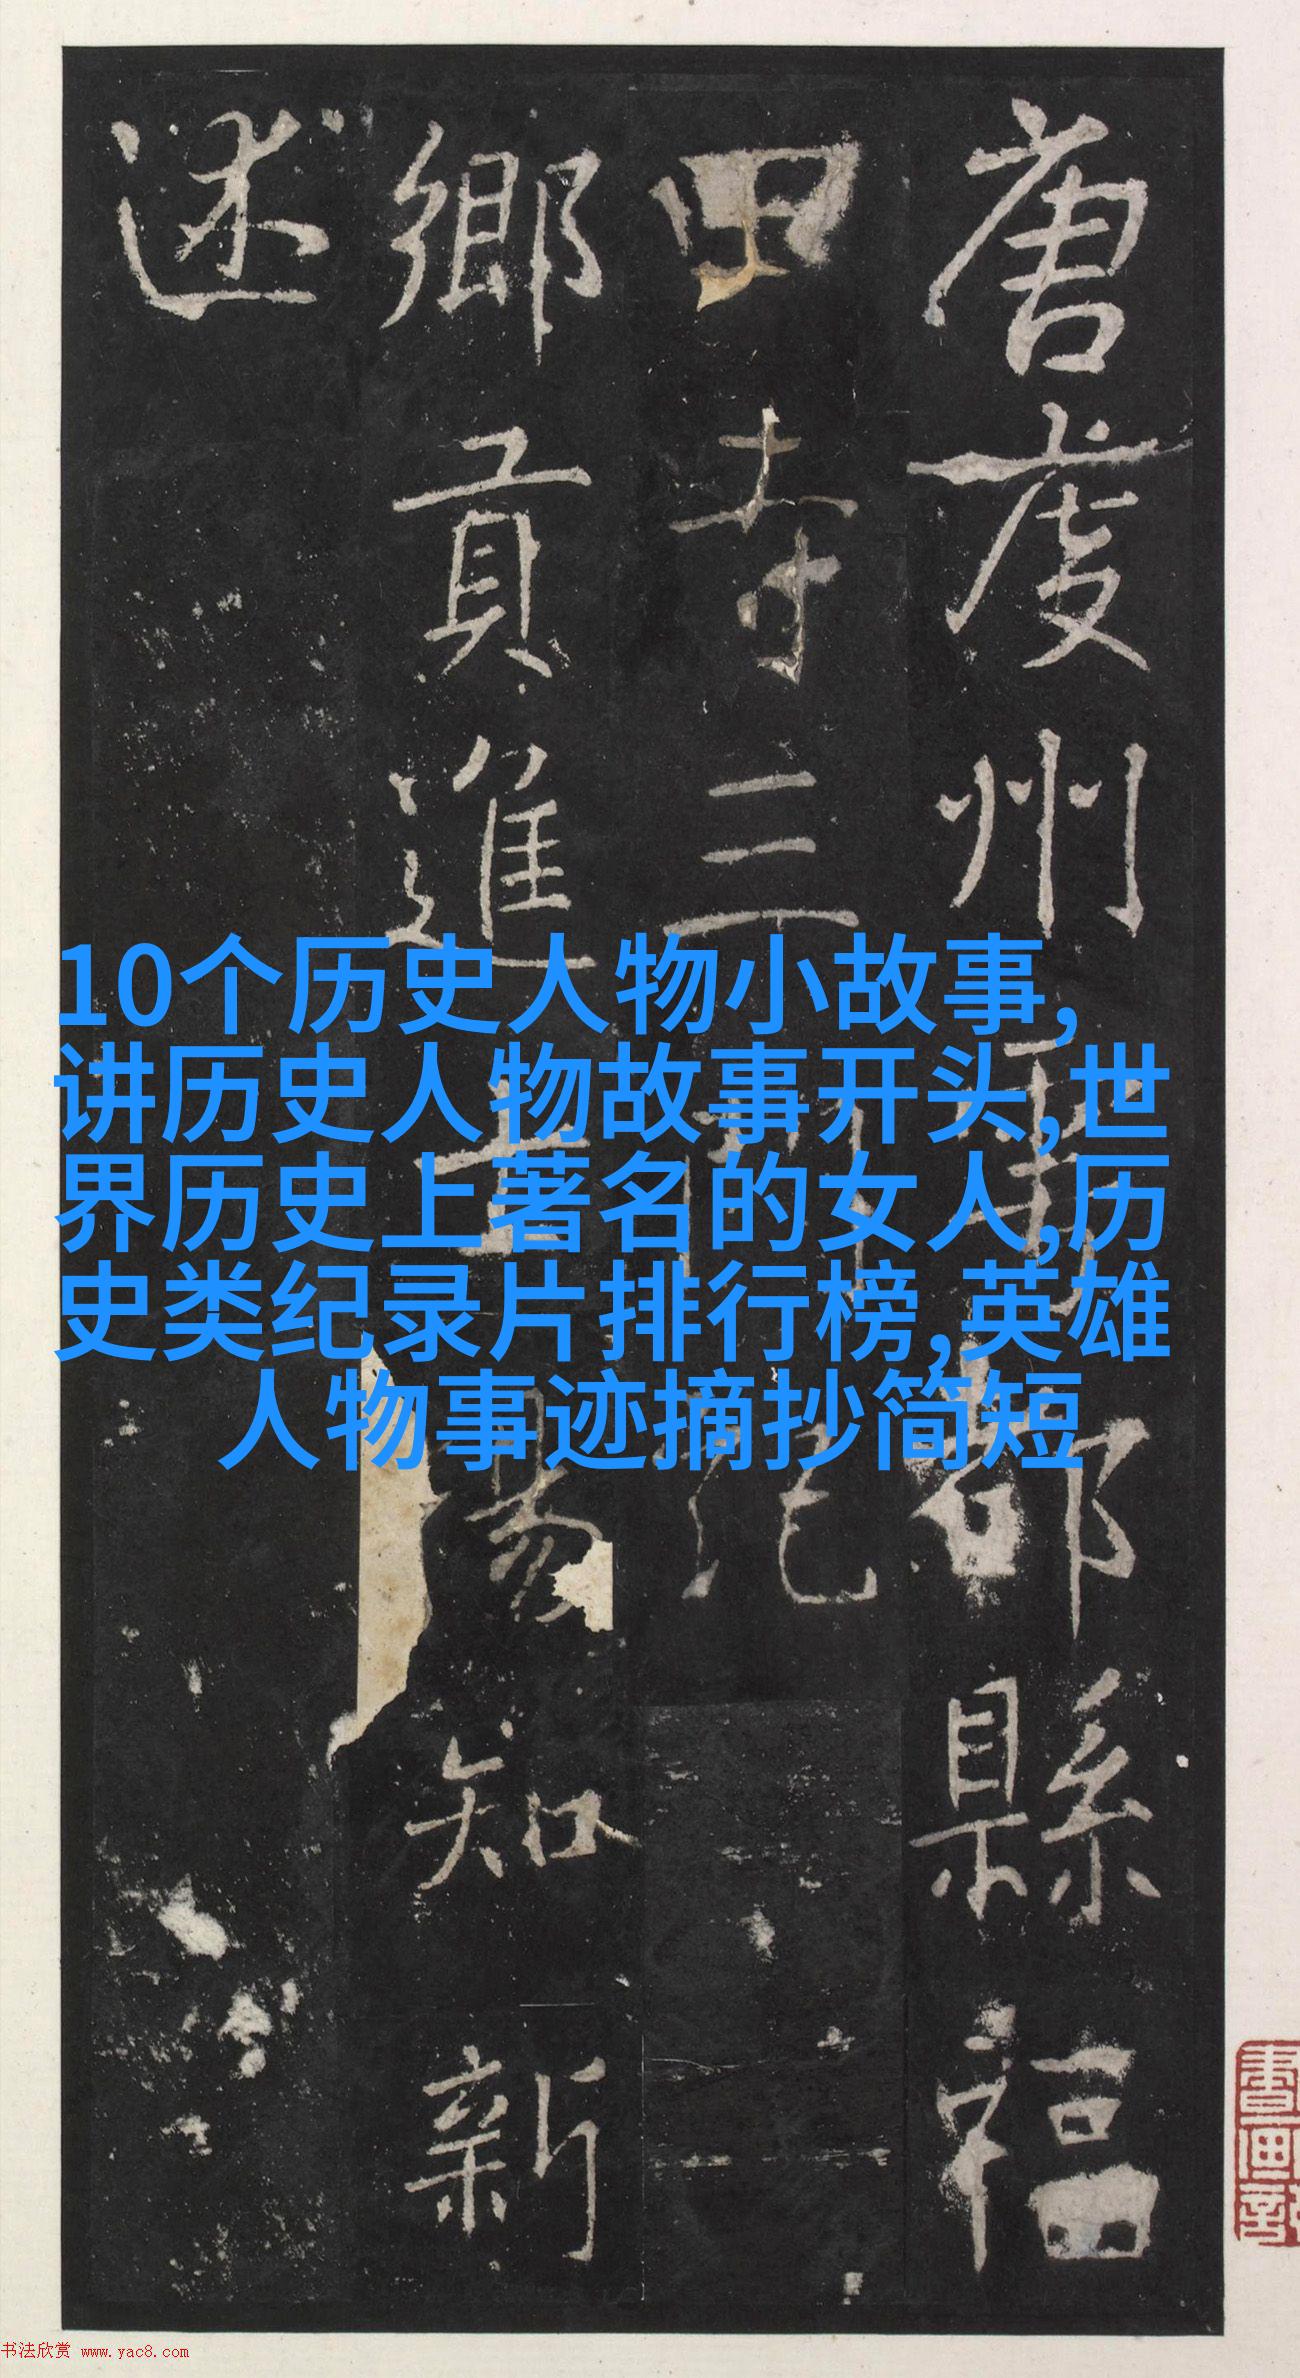 唐虔州都縣福
田寺三門記
鄉貢進士知新
述
10个历史人物小故事,
讲历史人物故事开头,世
界历史上著名的女人,历
史类纪录片排行榜,英雄
人物事迹摘抄简短
书法欣赏 www.yac8.com